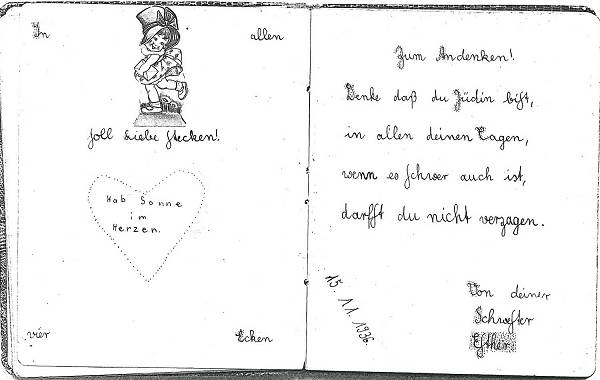 In allen
soll Liebe stecken!
Hab Sonne
im
Herzen.
vier Ecken
Zum Andenken!
Denke daß du Jüdin bist,
in allen deinen Tagen,
wenn es schwer auch ist,
darfst du nicht verzagen.
15.11.1936.
Von deiner
Schwester
Esther